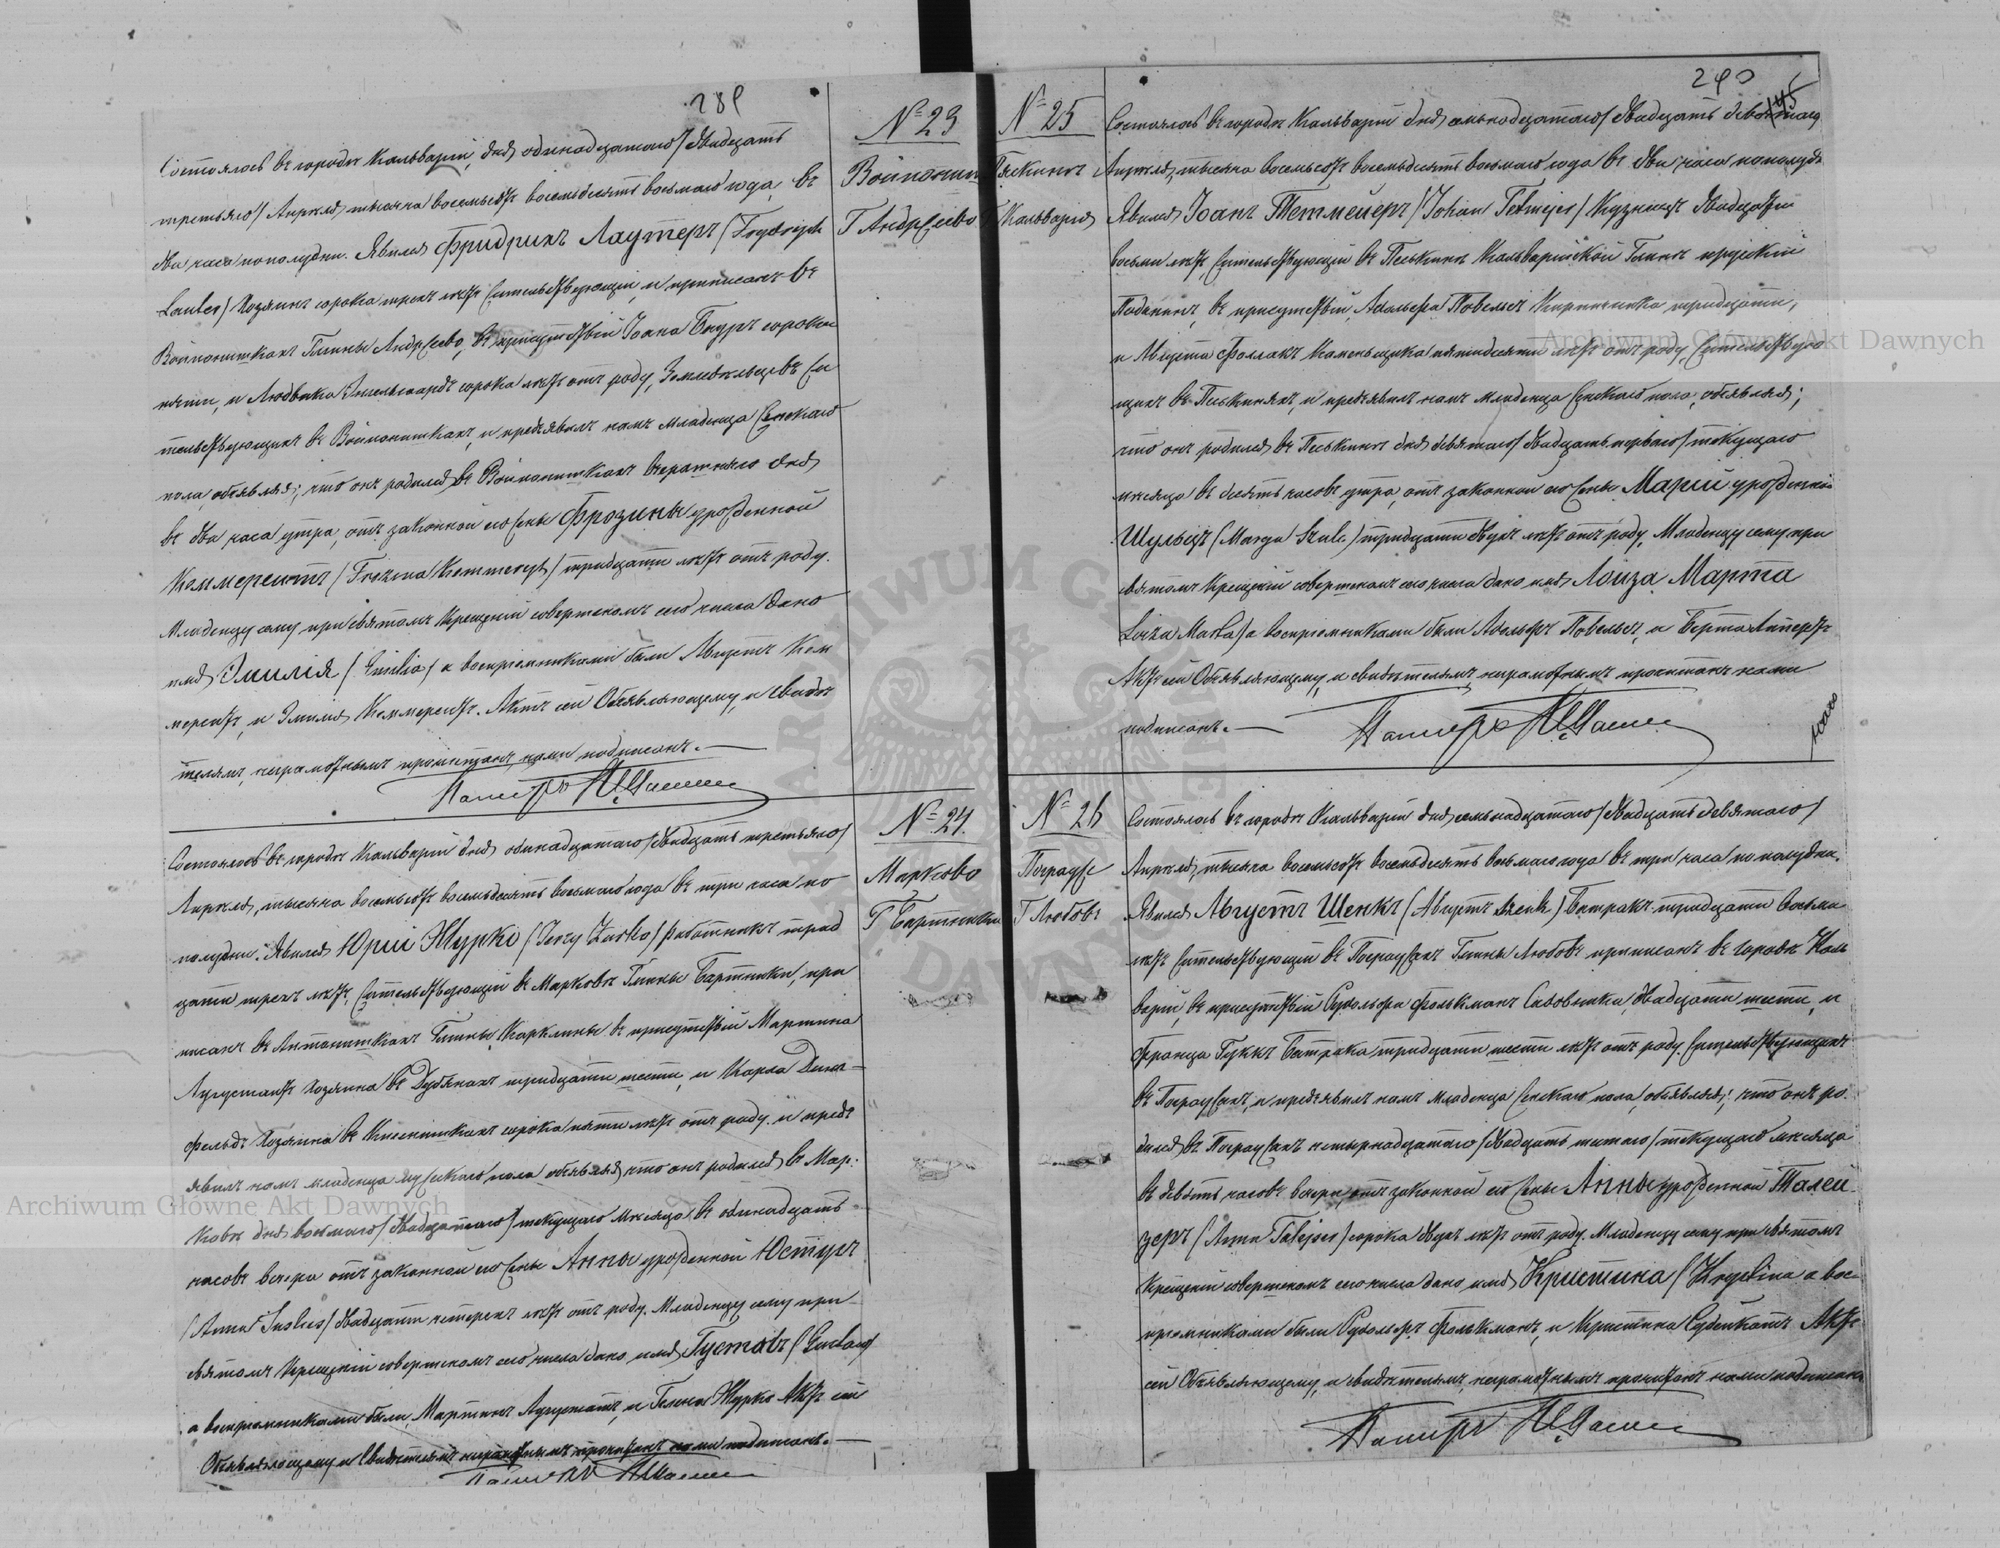 289
№ 23
Войпониш
Г Андреево
Состоялось въ городѣ Кальваріи, дня одинадцатаго/двадцать
третьяго/ Апрѣля, тысяча восемьсотъ восемьдесятъ восьмаго года, въ
два часа пополудни. Явился Фридрихъ Лаутеръ /Frydrych
Lauter/ Хозяинъ сорока трехъ лѣтъ жительствующій и приписанъ въ
Войпонишкахъ Гмины Андреево, въ присутствіи Іоана сорока
пяти, и Людвика сорока лѣтъ отъ роду, Земледѣльцевъ жи
тельствующихъ въ Войпонишкахъ, и предъявилъ намъ младенца женскаго
пола, объявляя; что онъ родился въ Войпонишкахъ вчерашняго дня
въ два часа утра, отъ законной его жены Фрозины урожденной
Коммерентъ / тридцати лѣтъ отъ роду.
Младенцу сему при святомъ крещеніи совершеномъ сего числа дано
имя Эмилія /Emilia/ а воспріемниками были Августъ Ком
мерентъ, и Эмилія Коммерентъ. Актъ сей Объявляющему, и свидѣ
телямъ, неграмотнымъ прочитанъ, нами подписанъ. —
Пасторъ
№ 24.
Марково
Г Бартники
Состоялось въ городѣ Кальваріи дня одинадцатаго/двадцать третьяго/
Апрѣля, тысяча восемьсотъ восемьдесятъ восьмаго года въ три часа по
полудни. Явился Юрій Журко /Jerzy Żurko/ работникъ трид
цати трехъ лѣтъ, жительствующій въ Марковѣ Гмины Бартники, при
писанъ въ Антонишкахъ Гмины въ присутствіи Мартина
Аугустатъ Хозяина въ тридцати шести, и Карла
фельдъ Хозяина въ сорока пяти лѣтъ отъ роду, и предъ
явилъ намъ младенца мужескаго пола объявляя, что онъ родился въ Мар-
ковѣ дня восьмаго/двадцатаго/текущаго мѣсяца въ одинадцать
часовъ вечера отъ законной его жены Анны урожденной Юстусъ
/Anna Justus/ двадцати четырехъ лѣтъ отъ роду. Младенцу сему при
святомъ крещеніи совершеномъ сего числа дано имя Густавъ /Gustaw/
а воспріемниками были, Мартинъ Аугустатъ, и Журко Актъ сей
Объявляющему и свидѣтелямъ неграмотнымъ прочитанъ нами подписанъ. —
Пасторъ
290
145
№ 25
Пескине
Г Кальварія
Состоялось въ городѣ Кальваріи дня семьнадцатаго/двадцать девятаго
Апрѣля, тысяча восемьсотъ восемьдесятъ восьмаго года въ два часа пополудн
Явился Іоанъ Тетмейеръ /Johan Tetmejer/ Кузнецъ двадцати
восьми лѣтъ жительствующій въ Пескине Кальварійской Гмины прускій
Подданый, въ присутствіи, Адольфа Повельсъ тридцати,
и Августа Фоллакъ Каменьщика пятидесяти лѣтъ отъ роду, жительствую
щихъ въ Пескиняхъ, и предъявилъ намъ младенца женскаго пола, объявляя;
что онъ родился въ Пескине дня девятаго/двадцать перваго/текущаго
мѣсяца въ десять часовъ утра, отъ законной его жены Маріи урожденной
Шульцъ /Marya Szulc/ тридцати двухъ лѣтъ отъ роду. Младенцу сему при
святомъ Крещеніи совершеномъ сего числа дано имя Лоиза Марта
Loiza Marta/ а воспріемниками были Адольфъ Повельсъ, и Берта
Актъ сей Объявляющему, и свидѣтелямъ, неграмотнымъ прочитанъ нами
подписанъ. —
Пасторъ
№ 26
Пограусе
Г Любовъ
Состоялось въ городѣ Кальваріи дня семьнадцатаго/двадцать девятаго/
Апрѣля, тысяча восемьсотъ восемьдесятъ восьмаго года въ три часа по полудни.
Явился Августъ Шенкъ Батракъ тридцати восьми
лѣтъ жительствующій въ Гмины Любовъ приписанъ въ городѣ Каль
варіи, въ присутствіи Рудольфа Фолькманъ Садовника, двадцати шести, и
Франца Батрака тридцати шести лѣтъ отъ роду жительствующихъ
въ и предъявилъ намъ младенца женскаго пола, объявляя; что онъ ро
дился въ четырнадцатаго/двадцать шестаго/текущаго мѣсяца
въ девять часовъ вечера, отъ законной его жены Анны урожденной Талей-
зеръ /Anna Talejzer/ сорока двухъ лѣтъ отъ роду. Младенцу сему при святомъ
Крещеніи совершеномъ сего числа дано имя Кристина /Krystina а вос-
пріемниками были Рудольфъ Фолькманъ, и Кристина Актъ
сей Объявляющему, и свидѣтелямъ, неграмотнымъ прочитанъ нами подписанъ
Пасторъ
Archiwum Główne Akt Dawnych
Archiwum Główne Akt Dawnych
ARCHIWUM GŁÓWNE AKT DAWNYCH